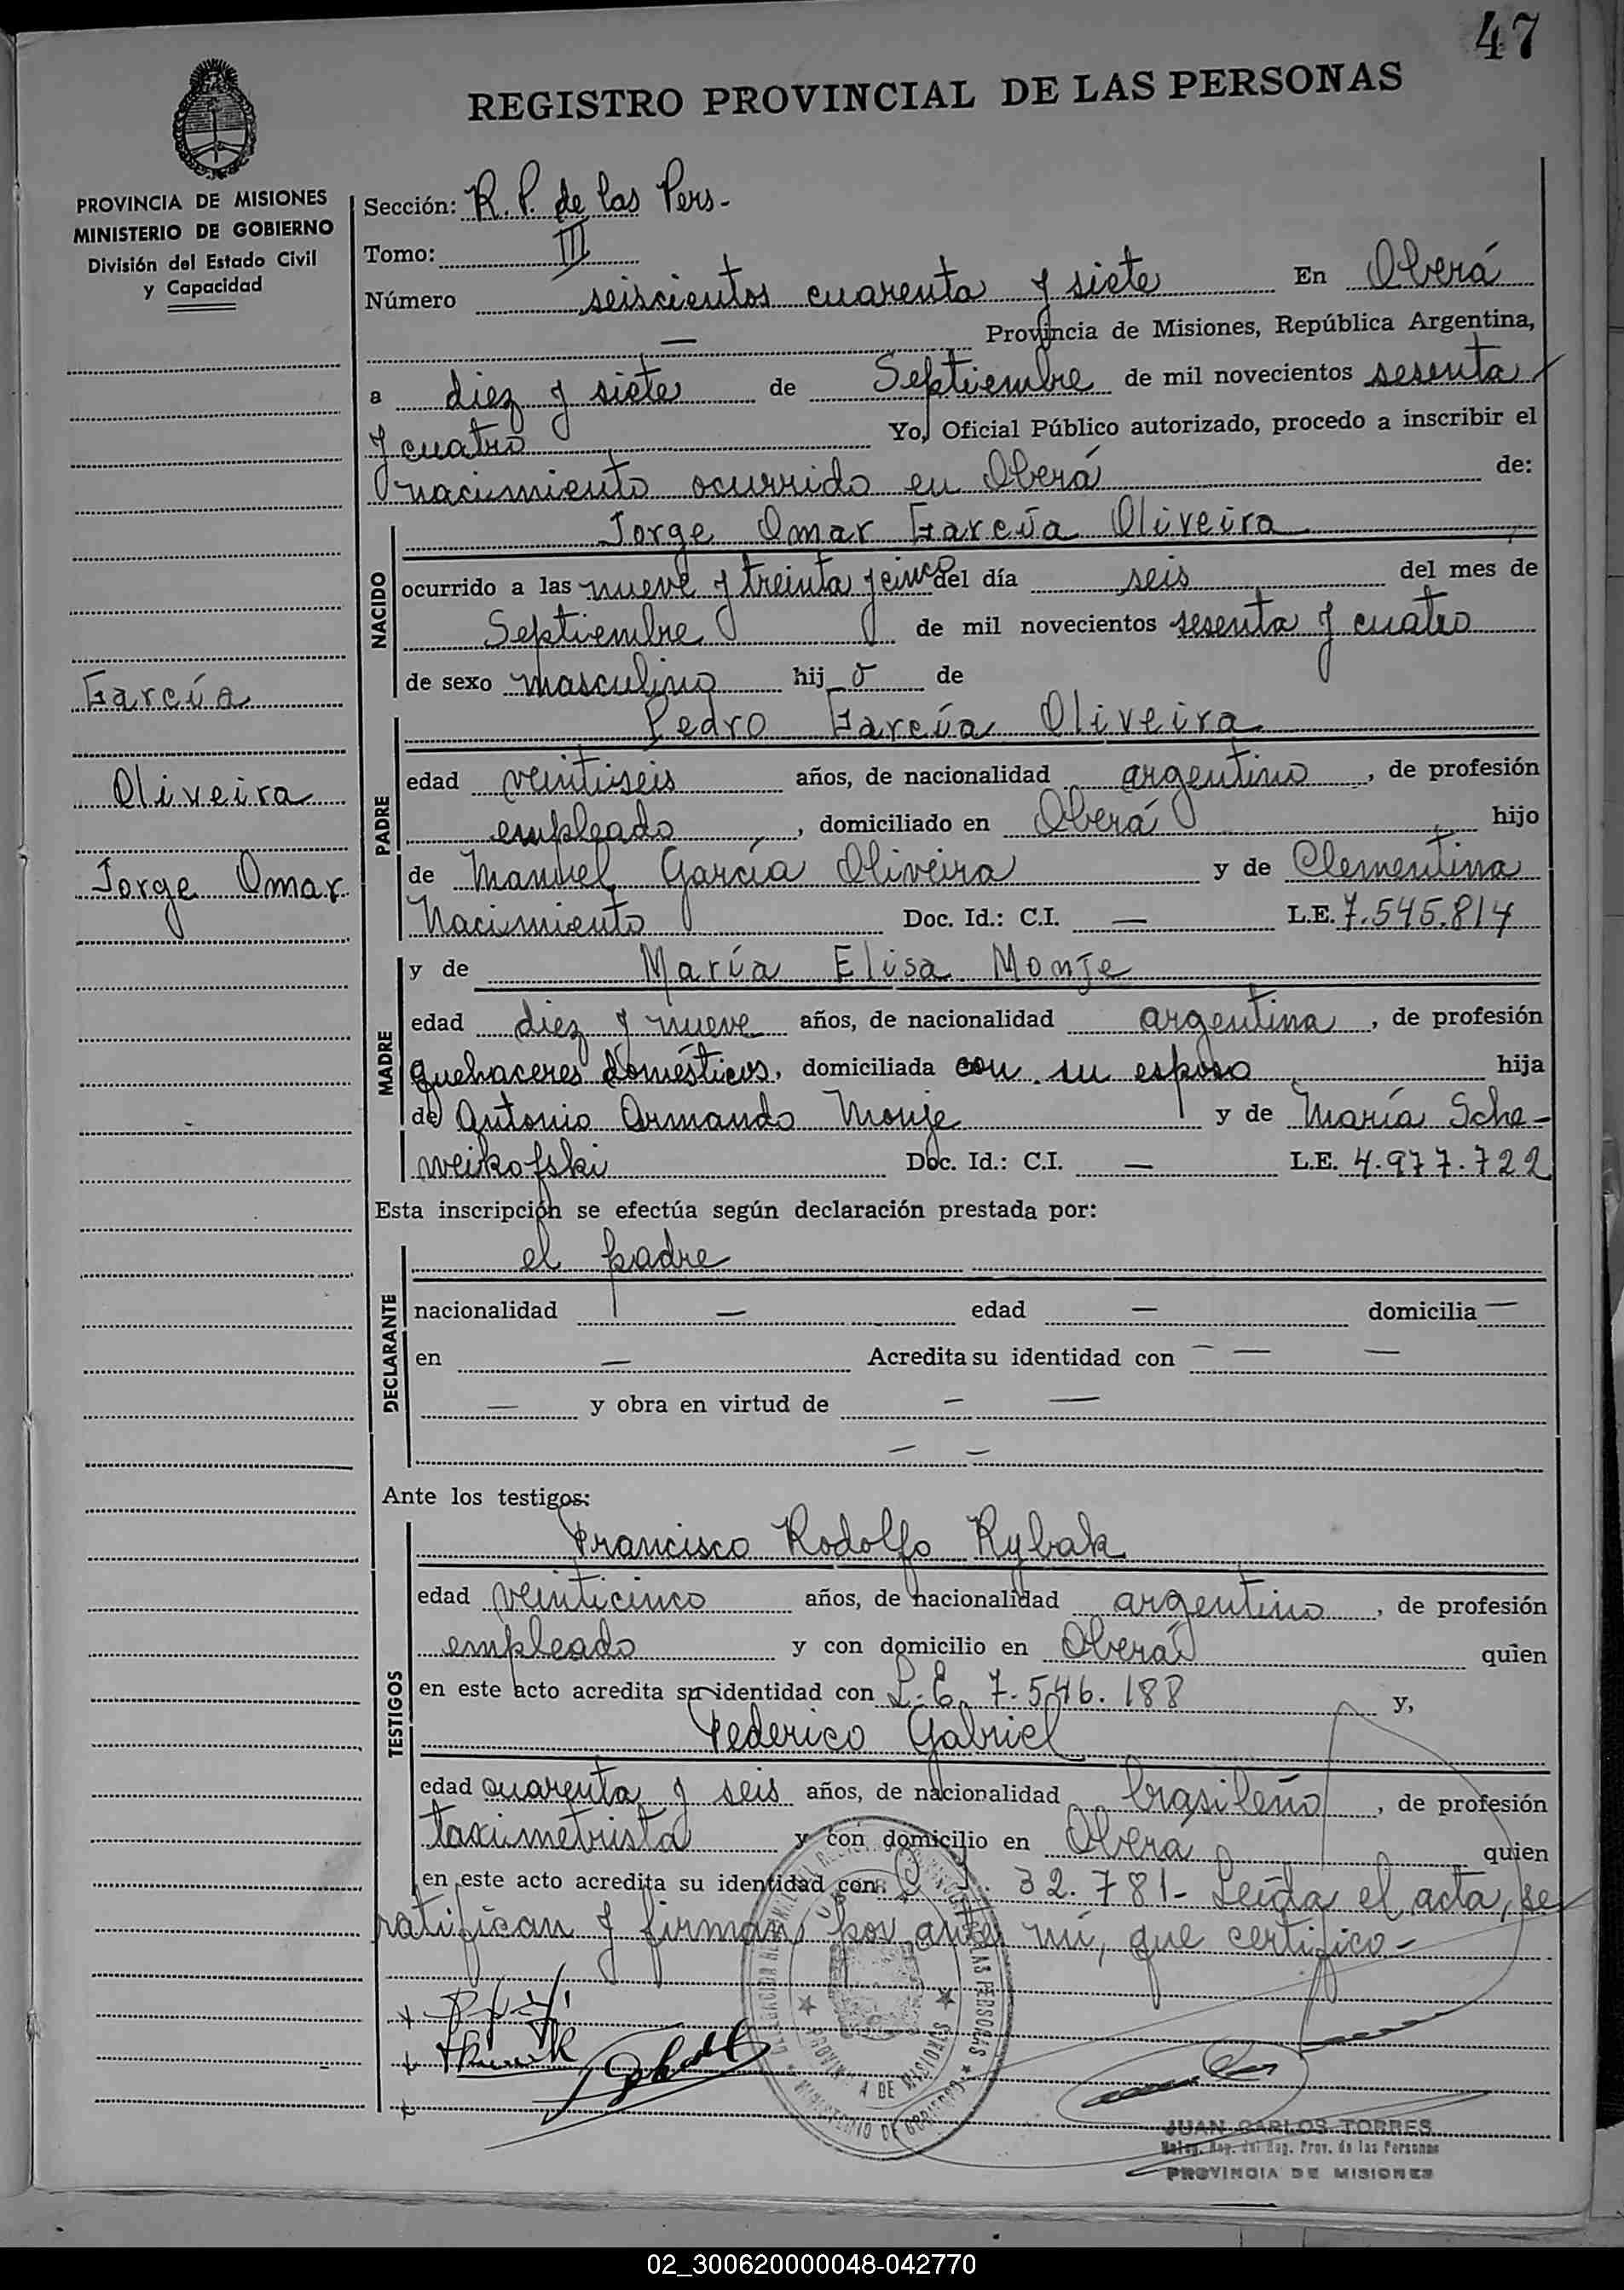 47
REGISTRO PROVINCIAL DE LAS PERSONAS
PROVINCIA DE MISIONES
MINISTERIO DE GOBIERNO
División del Estado Civil
y Capacidad
Sección: R. P. de las Pers.-
Tomo: III
Número seiscientos cuarenta y siete En Oberá
— Provincia de Misiones, República Argentina,
a diez y siete de Septiembre de mil novecientos sesenta
y cuatro Yo, Oficial Público autorizado, procedo a inscribir el
nacimiento ocurrido en Oberá de:
NACIDO
Jorge Omar García Oliveira
ocurrido a las nueve y treinta y cinco del día seis del mes de
Septiembre de mil novecientos sesenta y cuatro
de sexo masculino hijo de
García
Oliveira
Jorge Omar
PADRE
Pedro García Oliveira
edad veintiseis años, de nacionalidad argentino, de profesión
empleado, domiciliado en Oberá hijo
de Manuel García Oliveira y de Clementina
Nacimiento Doc. Id.: C.I. — L.E. 7.545.814
MADRE
y de María Elisa Monje
edad diez y nueve años, de nacionalidad argentina, de profesión
quehaceres domésticos, domiciliada con su esposo hija
de Antonio Armando Monje y de María Sche-
weikofski Doc. Id.: C.I. — L.E. 4.977.722
Esta inscripción se efectúa según declaración prestada por:
DECLARANTE
el padre
nacionalidad — edad — domicilia —
en — Acredita su identidad con — — —
— y obra en virtud de — —
— —
Ante los testigos:
TESTIGOS
Francisco Rodolfo Rybak
edad veinticinco años, de nacionalidad argentino, de profesión
empleado y con domicilio en Oberá quien
en este acto acredita su identidad con L.E. 7.546.188 y,
Federico Gabriel
edad cuarenta y seis años, de nacionalidad brasileño, de profesión
taximetrista y con domicilio en Oberá quien
en este acto acredita su identidad con C. I. 32.781- Leída el acta, se
ratifican y firman por ante mí, que certifico-
PROVINCIA DE MISIONES
MINISTERIO DE GOBIERNO
JUAN CARLOS TORRES
Reg. Prov. de las Personas
PROVINCIA DE MISIONES
02_300620000048-042770